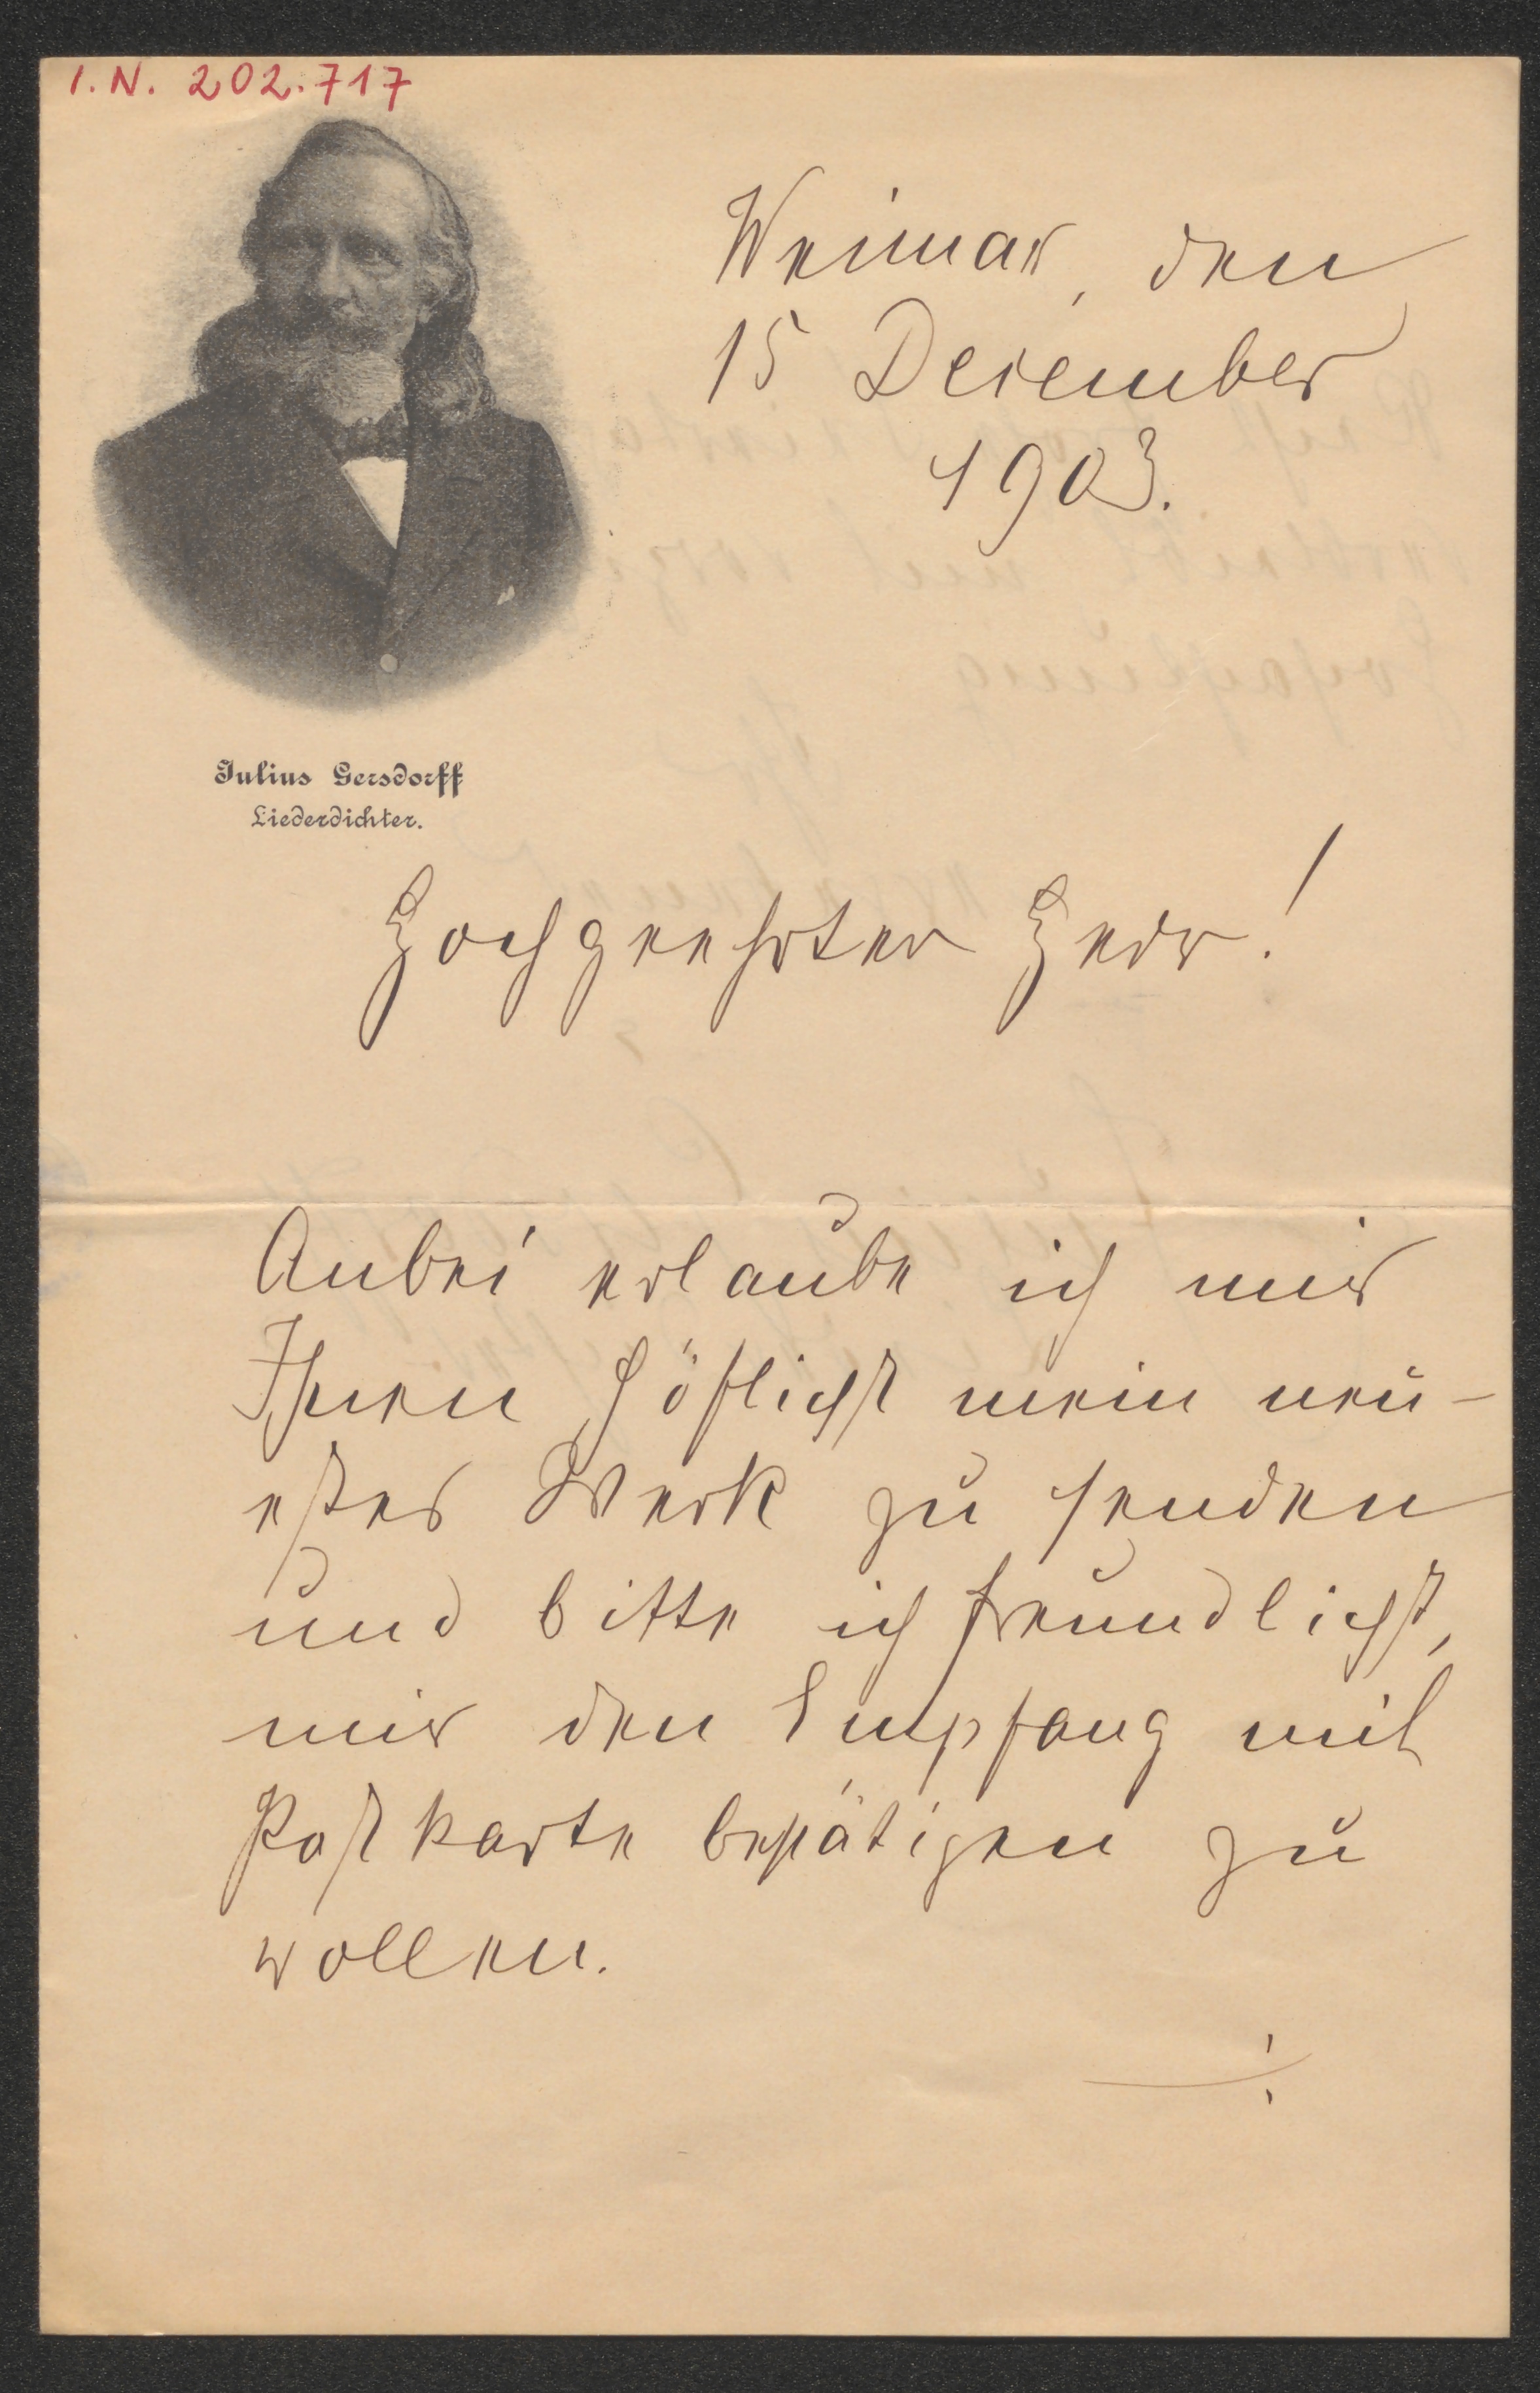 I.N. 202.717
Weimar, den
15 Dezember
1903.
Julius Gersdorff
Liederdichter.
Hochgeehrter Herr!
Anbei erlaube ich mir
Ihnen höflichst mein neu-
estes Werk zu senden
und bitte ich freundlichst,
mir den Empfang mit
Postkarte bestätigen zu
wollen.